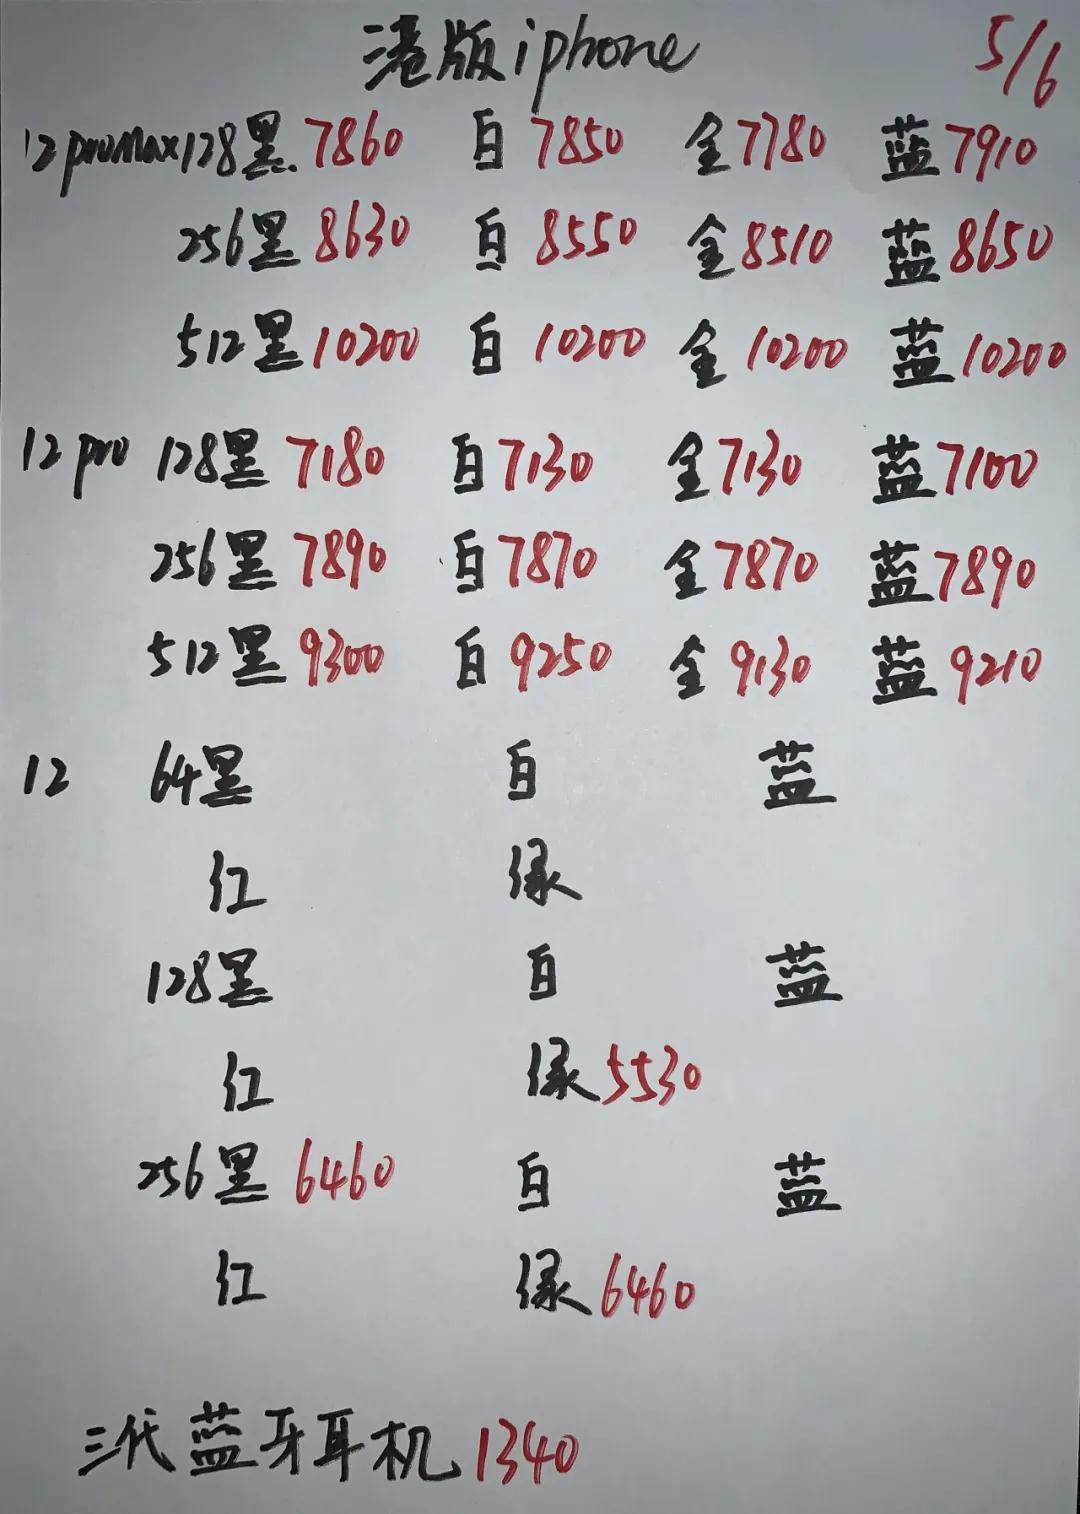 港版iphone 5/6
12promax128黑7860 白7850 金7780 蓝7910
256黑8630 白8550 金8510 蓝8650
512黑10200 白10200 金10200 蓝10200
12pro 128黑7180 白7130 金7130 蓝7100
256黑7890 白7870 金7870 蓝7890
512黑9300 白9250 金9130 蓝9210
12 64黑 白 蓝
红 绿
128黑 白 蓝
红 绿5530
256黑6460 白 蓝
红 绿6460
三代蓝牙耳机1340